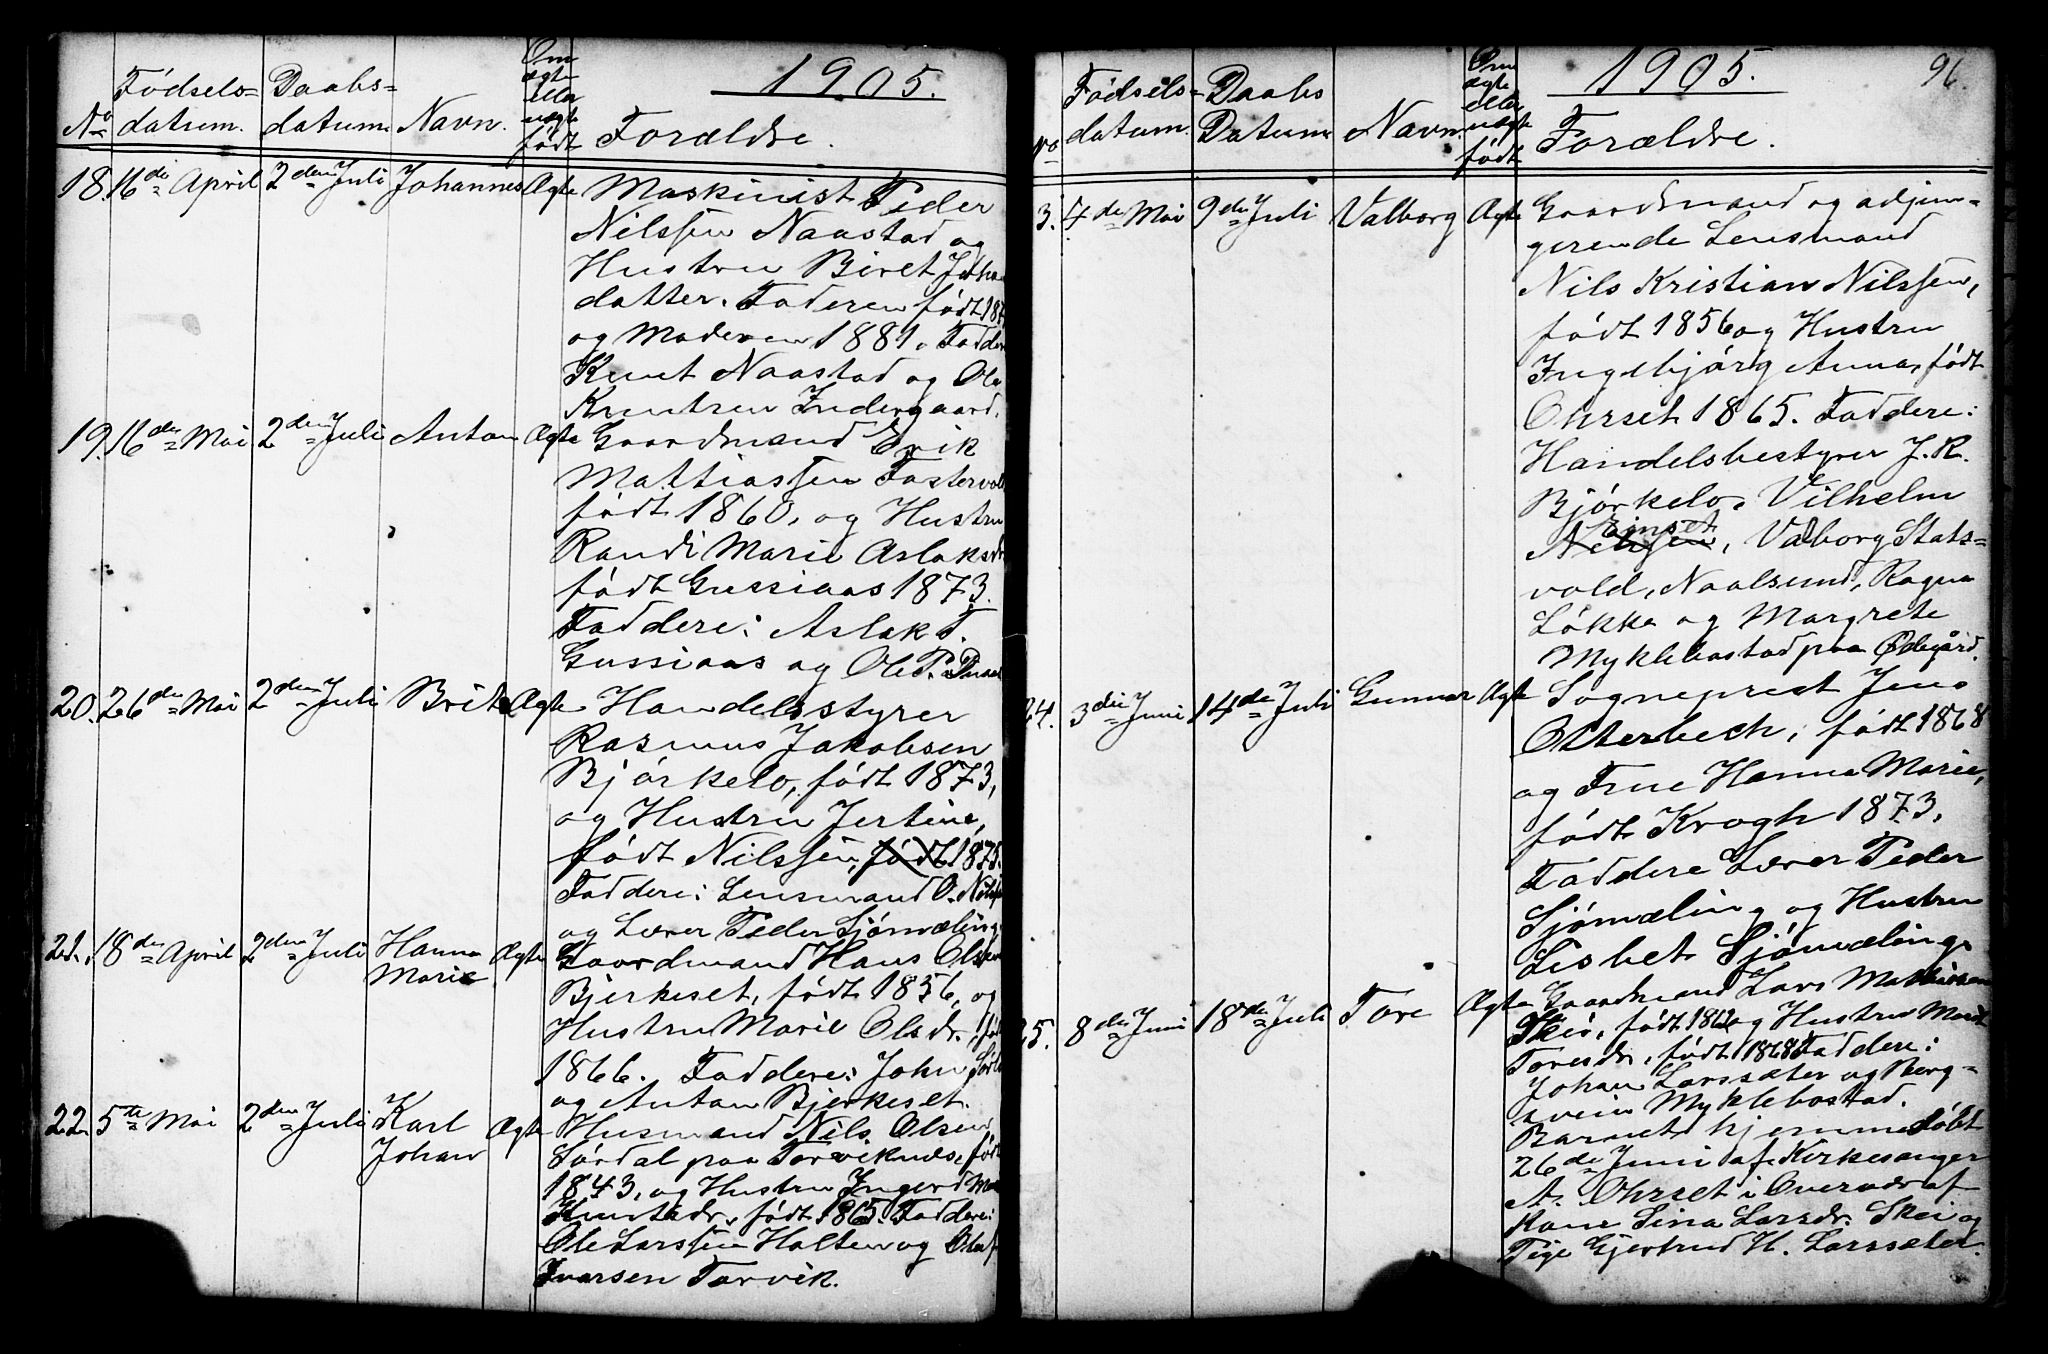 1905.
No Fødselsdatum. Daabsdatum Navn. Om ægte eller uægte født Forældre.
18. 16de April 2den Juli Johannes Ægte Maskinist Peder
Nilssen Naastad og
Hustru Beret Joha
datter. Faderen født 187
og Moderen 1881. Fadder
Knut Naastad og Ola
Knutsen Indergaard.
19. 16de Mai 2den Juli Anton Ægte Gaardmand Erik
Mattiassen Fostervold
født 1860, og Hustru
Randi Marie Aslaksdr
født Gussiaas 1873.
Faddere: Aslak T.
Gussiaas og Ole P.
20. 26de Mai 2den Juli Brit Ægte Handelsstyrer
Rasmus Jakobsen
Bjørkelo, født 1873,
og Hustru Jertine,
født Nilssen, født 1875.
Faddere: Lensmand O. Nilss
og Lærer Peder Sjømæling
21. 18de April 2den Juli Hanna Ægte Gaardmand Hans Olsen
Marie Bjerkeset, født 1856, og
Hustru Marie Olsdr., fød
1866. Faddere: John
og Anton Bjerkeset.
22. 5te Mai 2den Juli Karl Ægte Husmand Nils Olsen
Johan Sørdal paa Torviknes, født
1843, og Hustru Ingerd Ma
Knutsdr., født 1865. Faddere:
Ole Larssen Holten og Olaf
Ivarsen Torvik.
1905. 96.
No Fødselsdatum. Daabs Datum Navn. Om ægte eller uægte født Forældre.
3. 4de Mai 9de Juli Valborg Ægte Gaardmand og adjun-
gerende Lensmand
Nils Kristian Nilssen,
født 1856 og Hustru
Ingebjørg Anna, født
Ohrset 1865. Faddere:
Handelsbestyrer J. R.
Bjørkelo, Vilhelm
Nilssen, Valborg Stats-
vold, Naalsund, Ragna
Løkke og Margrete
Myklebostad paa Ødegård.
24. 3die Juni 14de Juli Gunnar Ægte Sogneprest Jens
Otterbech, født 1868
og Frue Hanna Marie,
født Krogh 1873.
Faddere Lærer Peder
Sjømæling og Hustru
Lisbet Sjømæling.
25. 8de Juni 18de Juli Tore Ægte Gaardmand Lars Mattissen
Skei, født 1862 og Hustru Marit
Toresdr., født 1868. Faddere:
Johan Larssæter og Berg-
svein Myklebostad.
Barnet hjemmedøbt
26de Juni af Kirkesanger
A. Ohrset i Overvær af
Kone Sina Larsdr. Skei og
Pige Gjertrud H. Larssæter.